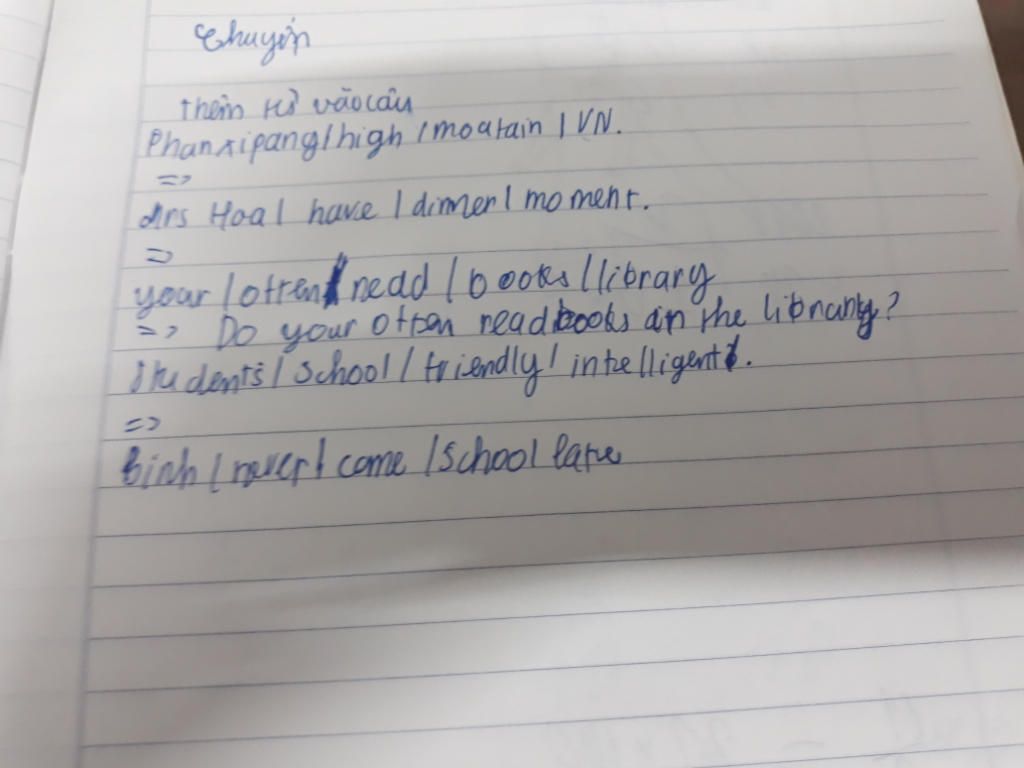 Chuyển
thêm từ vào câu
Phanxipang/high/moutain/VN.
=>
Mrs Hoa/ have/dinner/moment.
=>
your/often/read/books/library
=> Do your often read books in the library?
Students/School/friendly/intelligent.
=>
Binh/never/come/school late